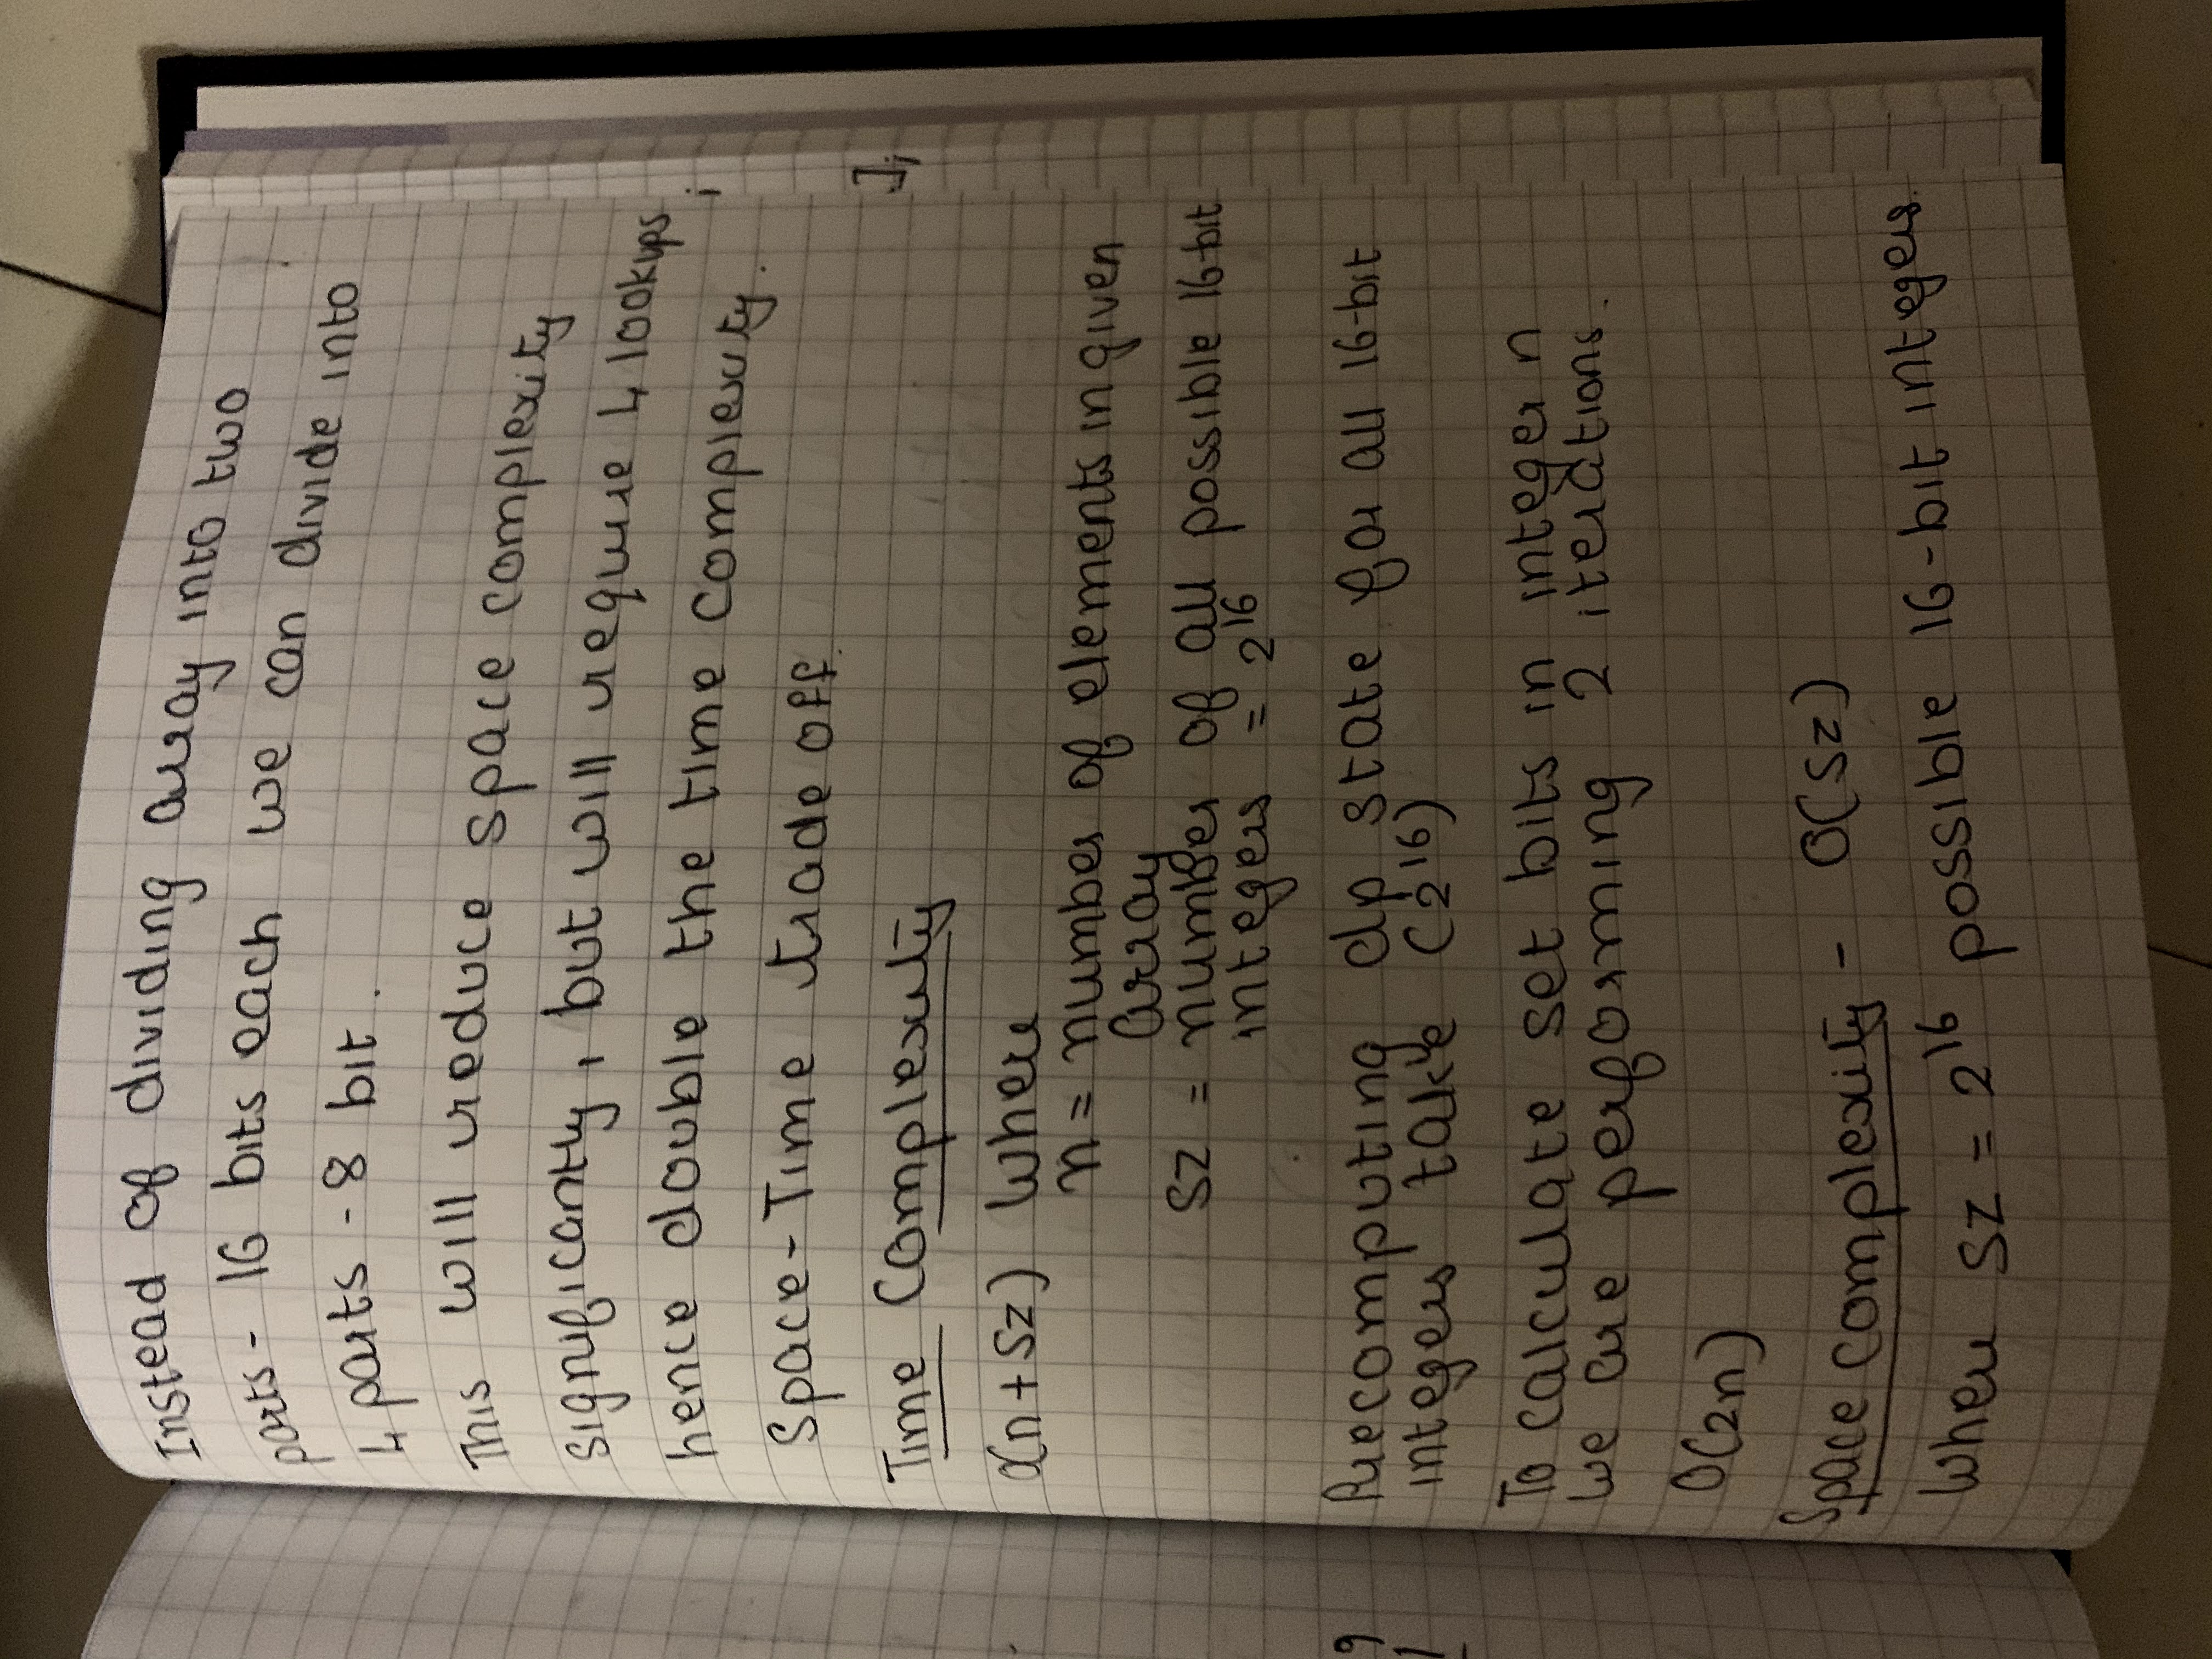 Instead of dividing array into two
parts - 16 bits each we can divide into
4 parts - 8 bit.
This will reduce space complexity
significantly, but will require 4 lookups
hence double the time complexity.
Space-Time trade off.
Time Complexity
O(n+sz) Where
n = number of elements in given
array
sz = number of all possible 16-bit
integers = 2^16
Precomputing dp state for all 16-bit
integers take (2^16)
To calculate set bits in integer n
we are performing 2 iterations.
O(2n)
Space complexity - O(sz)
Where sz = 2^16 possible 16-bit integers.
;
];
9
1